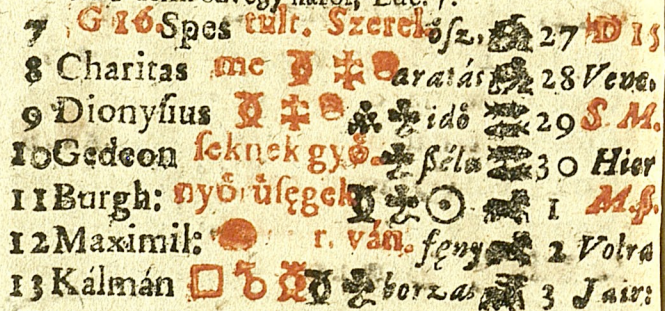 7 G 16. Spes tult. Szerel ősz, 27 D 15
8 Charitas me aratás 28 Vene.
9 Dionyſius idő 29 S. M.
10 Gedeon ſeknek gyö. ſzéla 30 Hier
11 Burgh: nyörüſęgek 1 M.ß.
12 Maximil: r. ván. fęny 2 Volra
13 Kálmán borzas 3 Jair: